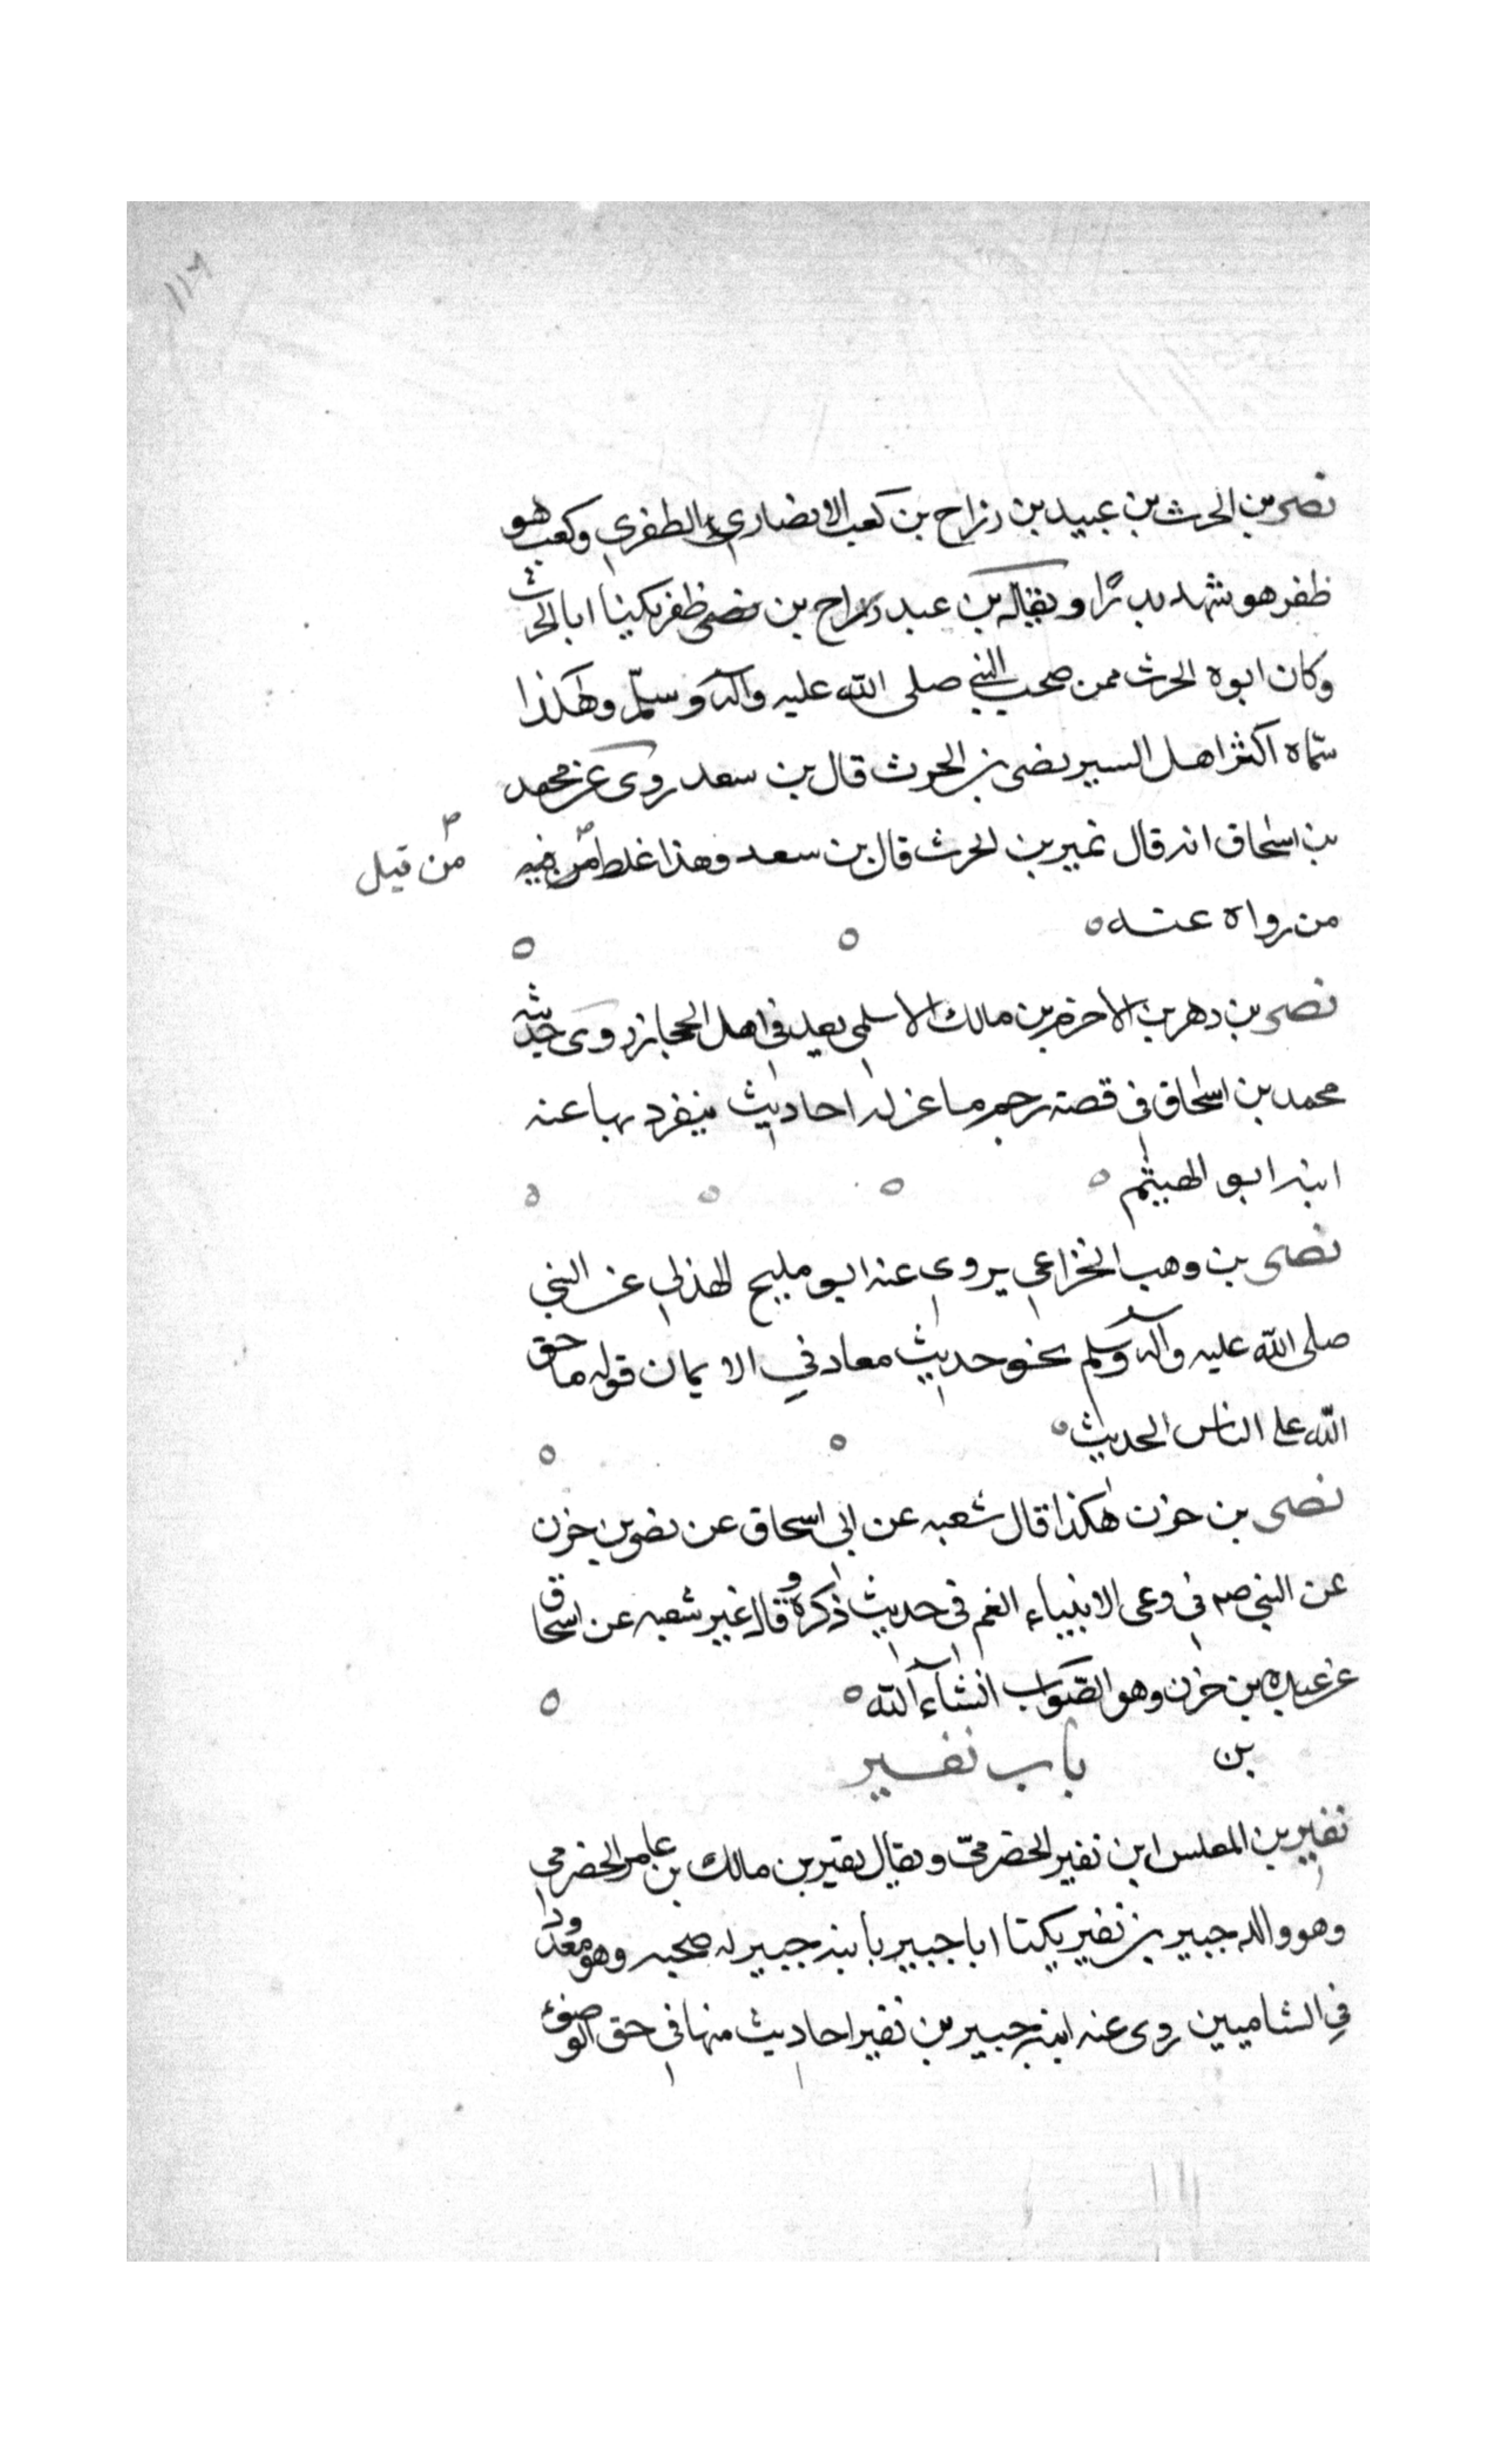 نصر بن الحرث بن عبيد بن رزاح بن كعب الانصاري الظفري وكعب هو
ظفر هو شهد بدرًا ويقال بن عبد رزاح بن ظفر يكنا ابا الحرث
وكان ابوه الحرث ممن صحب النبي صلى الله عليه وآله وسلّم وهكذا
سمّاه اكثر اهل السير نصر بن الحرث قال بن سعد روى عن محمد
بن اسحاق انه قال نمير بن الحرث قال بن سعد وهذا غلط من قبل
من رواه عنه
نصر بن دهر بن الاخرم بن مالك الاسلمي يعد في اهل الحجاز روى حديثه
محمد بن اسحاق في قصة رجم ماعز له احاديث ينفرد بها عنه
ابنه ابو الهيثم
نصر بن وهب الخزاعي يروى عنه ابو مليح الهذلي عن النبي
صلى الله عليه وآله وسلم نحو حديث معاد في الايمان قوله ما حق
الله على الناس الحديث
نصر بن حزن هكذا قال شعبه عن ابي اسحاق عن نصر بن حزن
عن النبي صم في رعى الانبياء الغنم في حديث ذكره وقال غير شعبه عن اسحاق
عن عبده بن حزن وهو الصّواب انشآء الله
بن باب نفير
نفير بن المغلس ابن نفير الحضرميّ ويقال نفير بن مالك بن عامر الحضرمي
وهو والد جبير بن نفير يكنا ابا جبير بابنه جبير له صحبه وهو معدود
في الشاميين روى عنه ابنه جبير بن نفير احاديث منها في حق الوضوء
من قبل